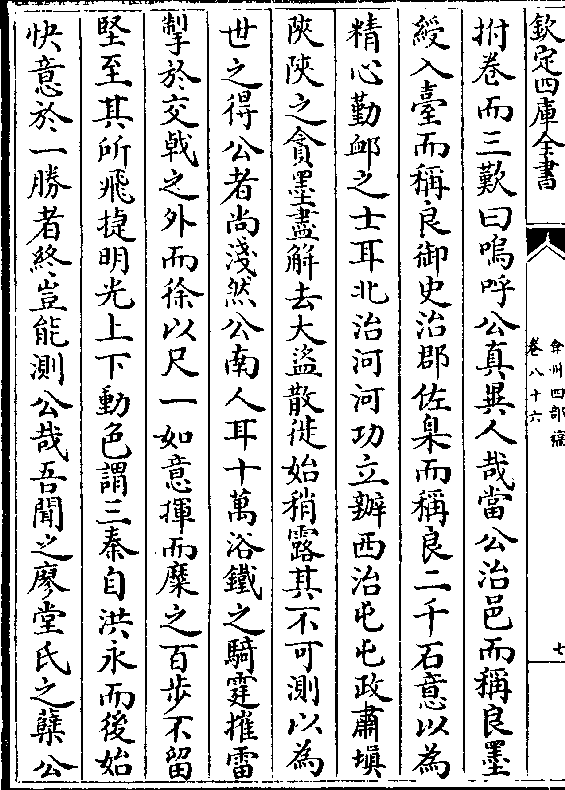 欽定四庫全書
弇州四部稿
卷八十六
七
拊卷而三歎曰嗚呼公真異人哉當公治邑而稱良墨
綬入臺而稱良御史治郡佐臬而稱良二千石意以為
精心勤䘏之士耳北治河河功立辦西治屯屯政肅填
陜陜之貪墨盡解去大盜散徙始稍露其不可測以為
世之得公者尚淺然公南人耳十萬浴鐵之騎霆摧雷
掣於交戟之外而徐以尺一如意揮而糜之百步不留
堅至其所飛捷明光上下動色謂三秦自洪永而後始
快意於一勝者終豈能測公哉吾聞之廖堂氏之孽公